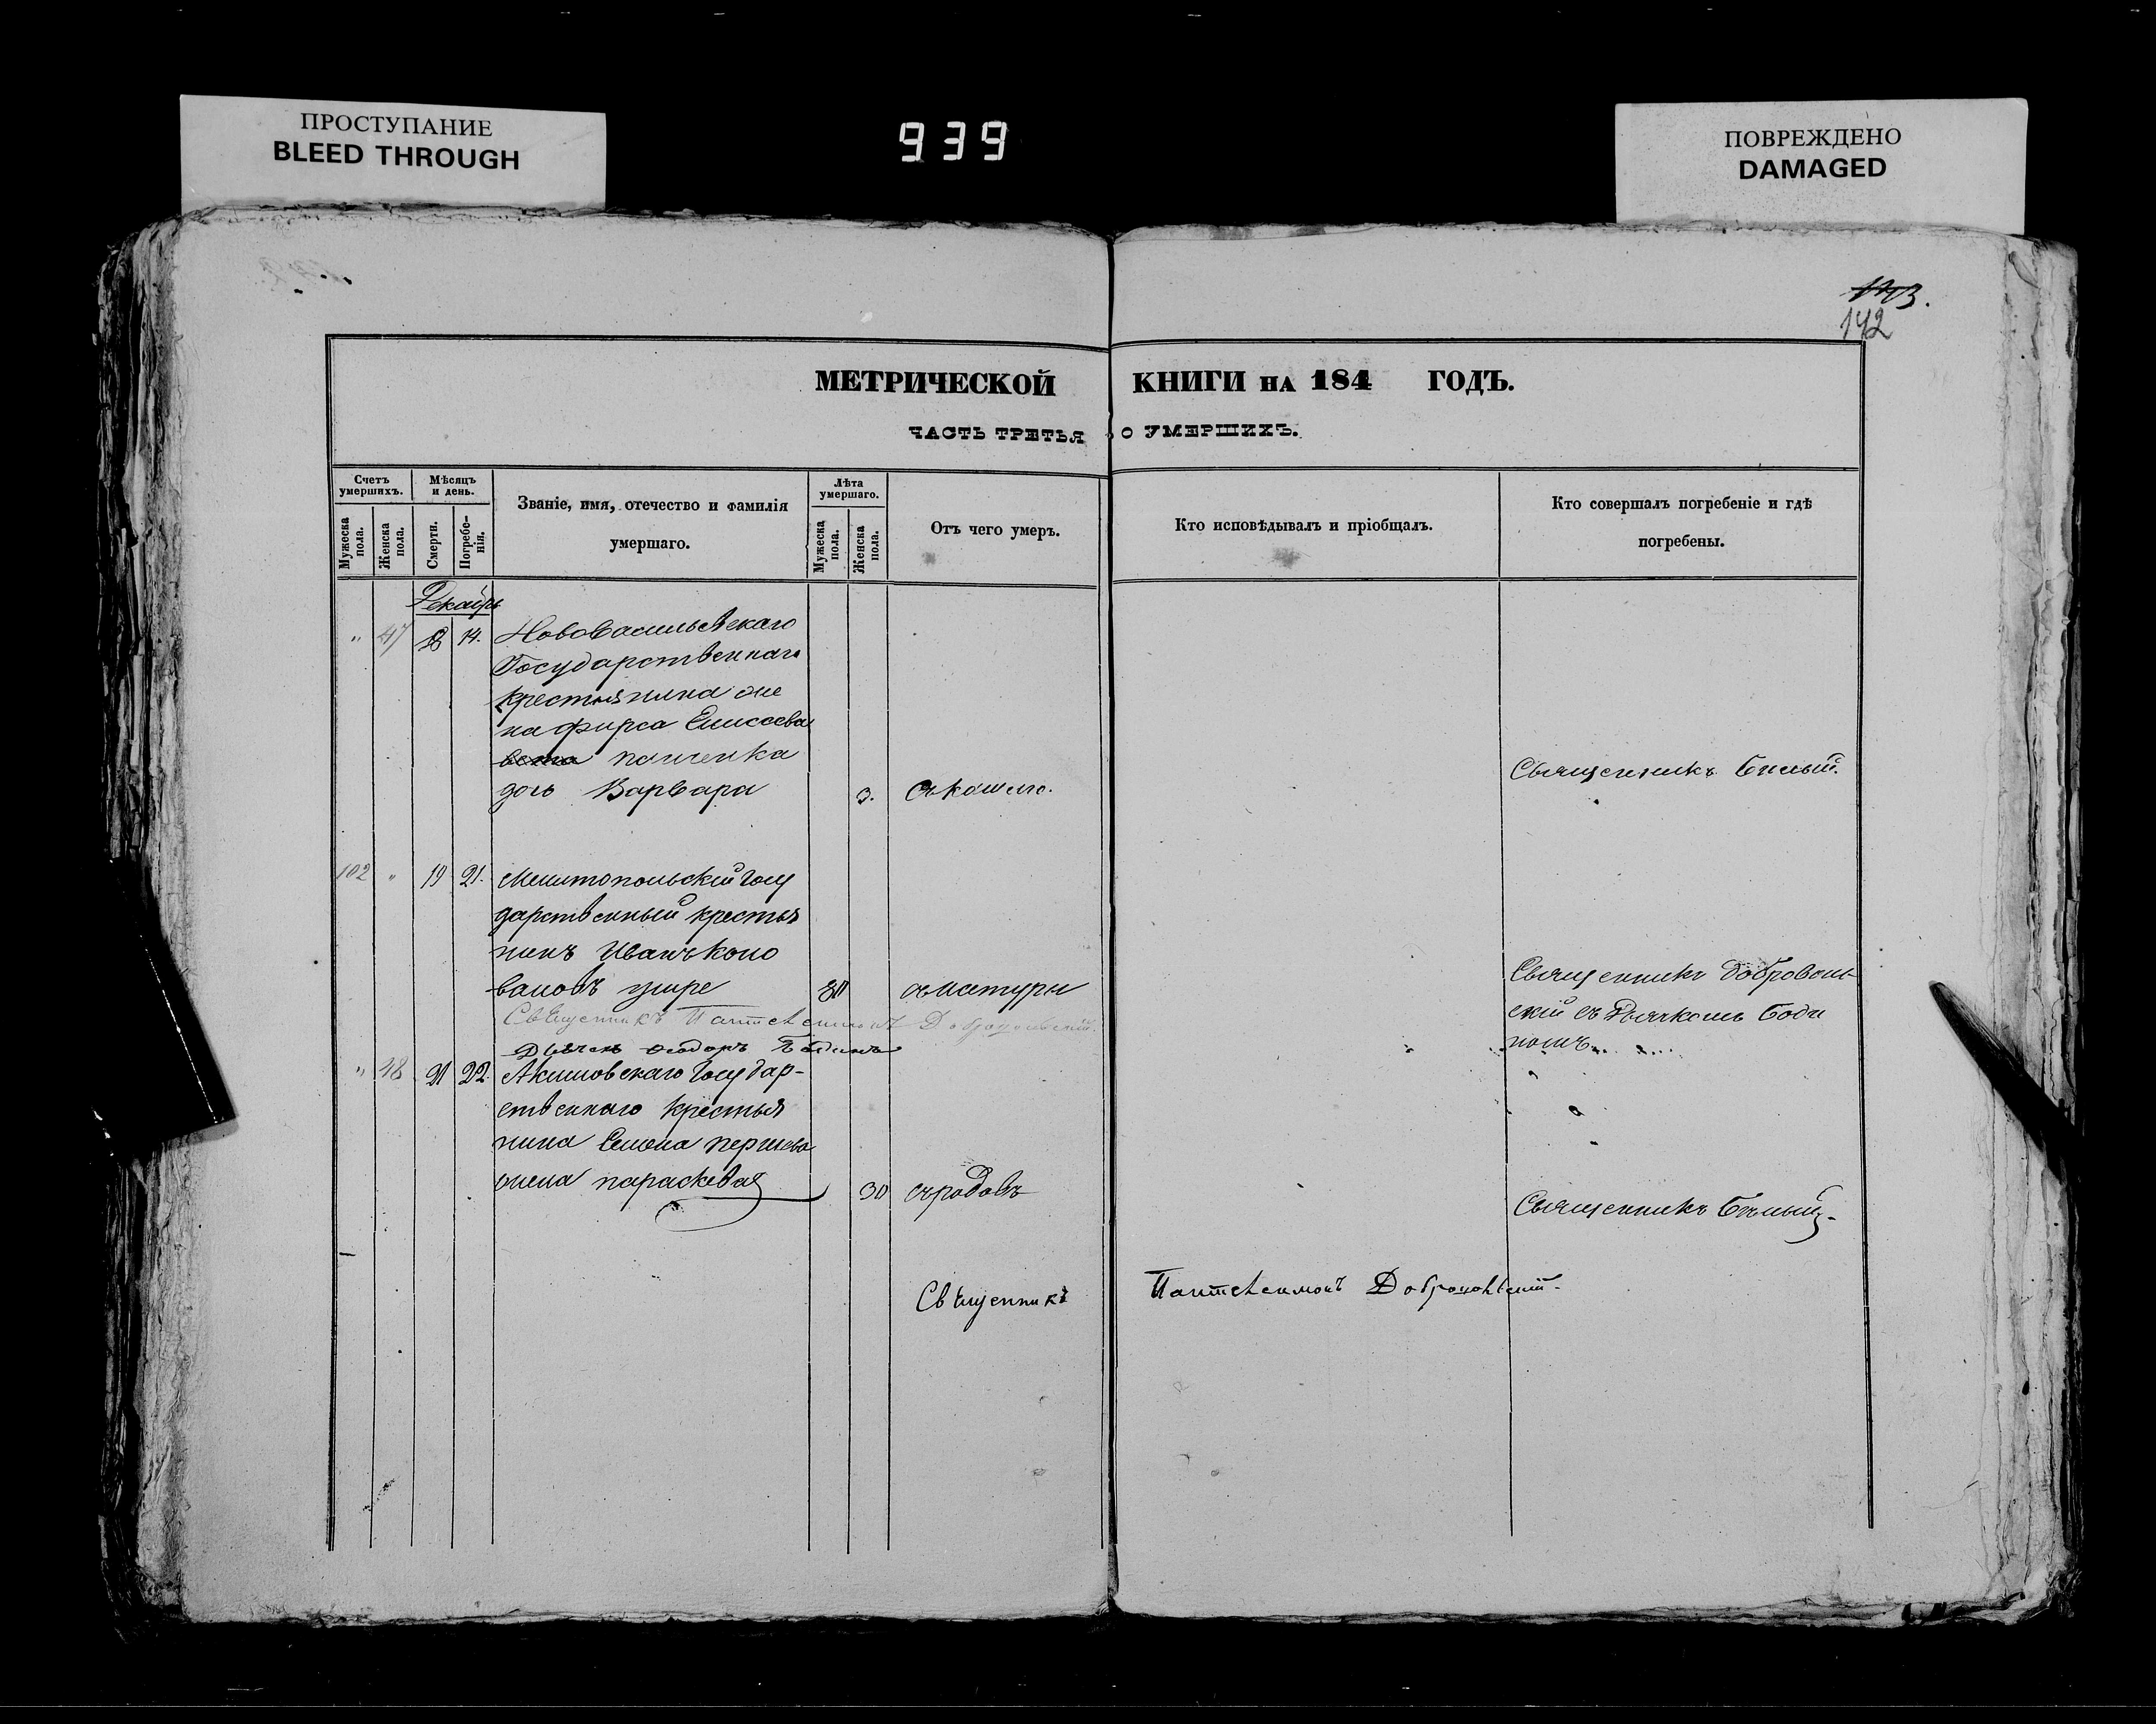 ПРОСТУПАНИЕ
BLEED THROUGH
939
ПОВРЕЖДЕНО
DAMAGED
143.
142
МЕТРИЧЕСКОЙ КНИГИ НА 184 ГОДЪ.
ЧАСТЬ ТРЕТЬЯ О УМЕРШИХЪ.
Счетъ умершихъ.
Мужеска пола.
Женска пола.
Мѣсяцъ и день.
Смерти.
Погребенія.
Званіе, имя, отечество и фамилія
умершаго.
Лѣта умершаго.
Мужеска пола.
Женска пола.
Отъ чего умеръ.
Кто исповѣдывалъ и пріобщалъ.
Кто совершалъ погребеніе и гдѣ
погребены.
Декабрь
" 47 14. Нововасильевскаго
Государственнаго
крестьянина
на Фирса Елисеева
дочь Варвара 3. Священникъ
102 " 19 21. Мелитопольскій Госу
дарственный крестья
нинъ Иванъ Коно
валовъ умре Священникъ Доброволь
скій съ Дьячкомъ Боди
номъ
Священникъ Пантелеимонъ Добровольскій.
Дьячекъ Ѳеодоръ Бодинъ
" 48 21 22. Акимовскаго Государ-
ственнаго крестья
нина Семена
жена Параскева 30 съ родовъ Священникъ
Священникъ Пантелеимонъ Добровольскій.